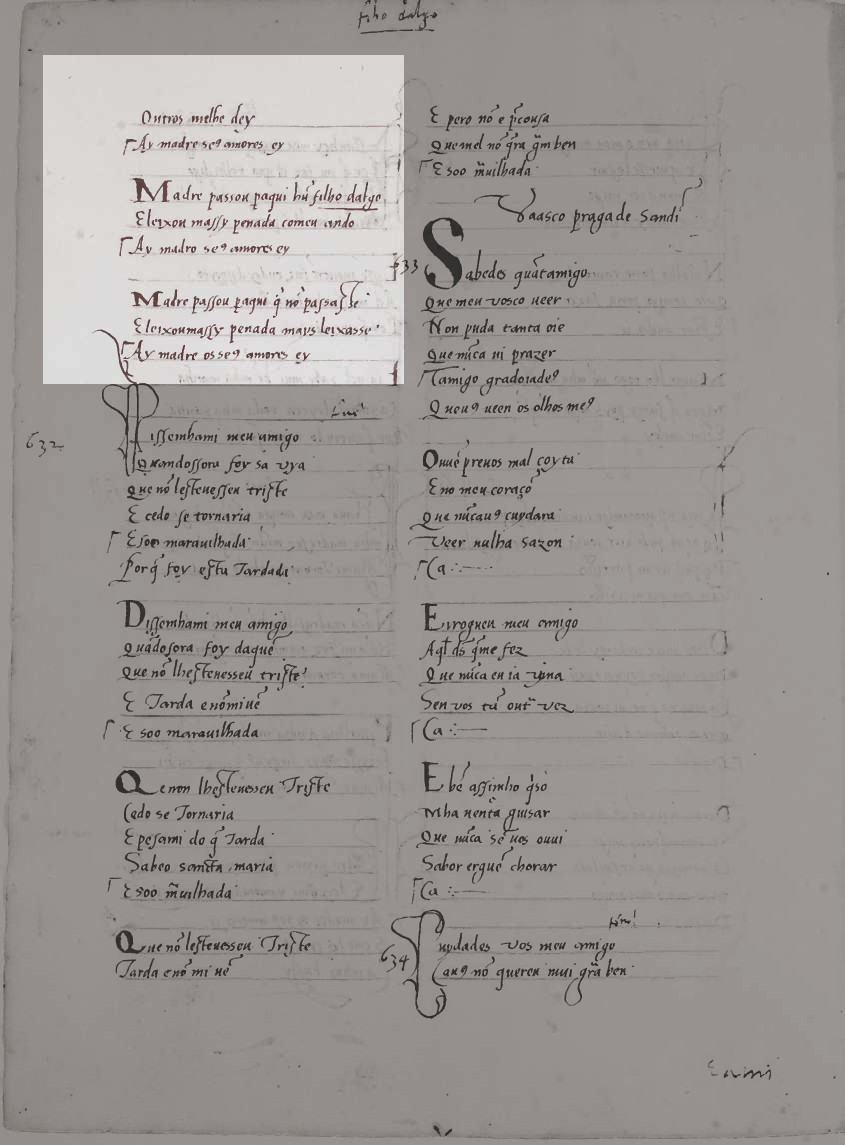 filho dalgo
Outros melhe dey
Ay madre seꝰ amores ey
Madre passou paqui hũ filho dalgo
E leixou massy penada comeu ando
Ay madro seꝰ amores ey
Madre passou paqui q̃ nõ passasse
E leixoumassy penada mays leixasse
Ay madre osseꝰ amores ey
632
Dissemhami meu amigo
Quandossora foy sa vya
Que nõ lestevessen triste
E cedo se tornaria
E soo maravilhada
Por q̃ foy esta Tardada
Dissemhami meu amigo
Quãdosora foy daque
Que nõ lhestevesseu triste
E Tarda e nõ mi vẽ
E soo maravilhada
Que non lhestevesseu Triste
Cedo se Tornaria
E pesami do q̃ Tarda
Sabeo sancta maria
E soo m̃uilhada
Que nõ lestevesseu Triste
Tarda e nõ mi vẽ
E pero nõ e p̃cousa
Quemel nõ g̃ra g̃m ben
E soo m̃uilhada
Vaasco praga de Sandi
633
Sabedes quãtamigo
Que meu vosco veer
Non puda tanta oie
Que nũca vi prazer
Tamigo gradoiadeꝰ
Queuꝰ veen os olhos meꝰ
Ouvẽ prevos mal coyta
E no meu coraçõ
Que nũcauꝰ cuydara
Veer nulha sazon
Ca
E iroguen meu amigo
Aql̃ ds̃ q̃me fez
Que nũca en ia vyva
Sen vos tã out̃ vez
Ca
E bẽ assinho q̃so
Mha ventã guisar
Que nũca sẽ vos ouvi
Sabor erguẽ chorar
Ca
634
Cuydades vos meu amigo
Cauꝰ nõ queren mui grã ben